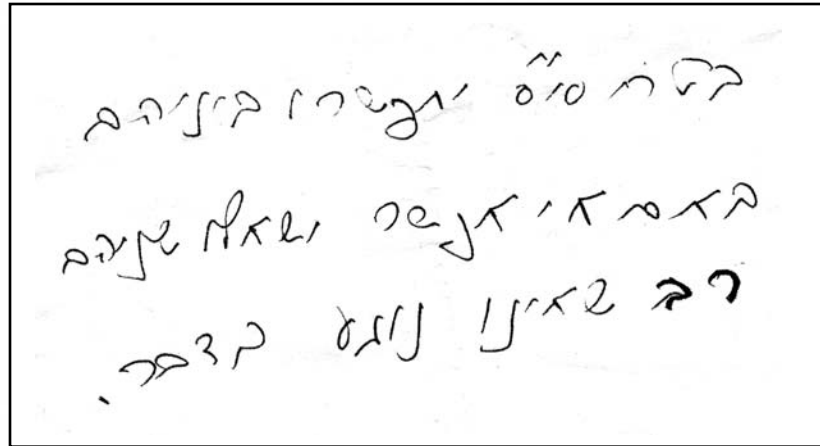 בטח סו"ס יתפשרו ביניהם
באם אי אפשר ישאלו שניהם
רב שאינו נוגע בדבר.